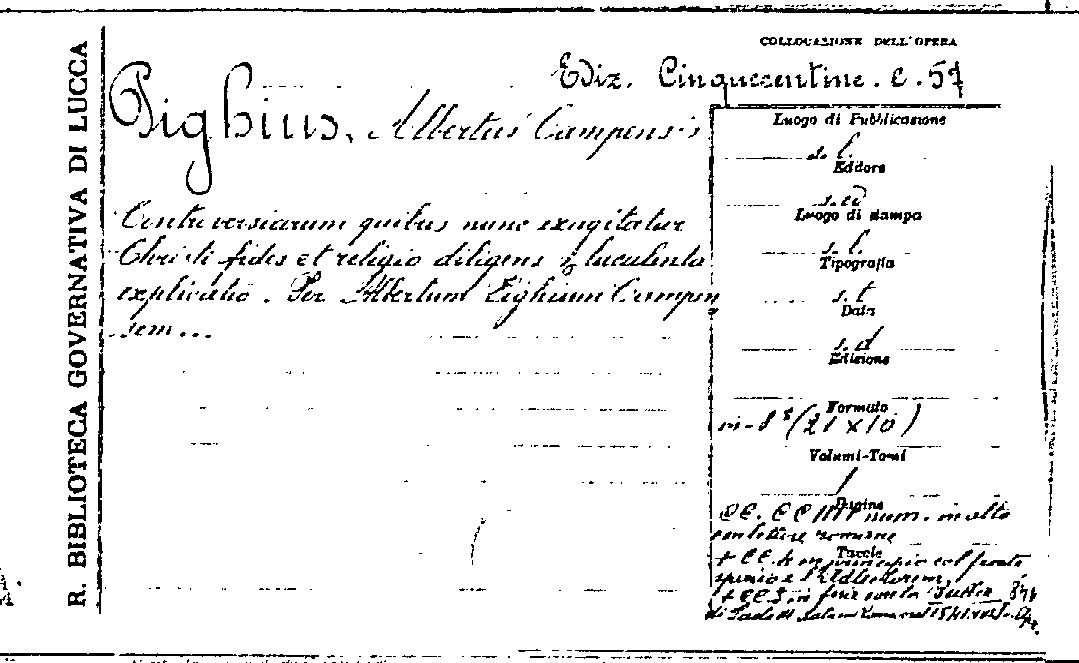 R. BIBLIOTECA GOVERNATIVA DI LUCCA
COLLOCAZIONE DELL'OPERA
Ediz. Cinquecentine. c. 57
Pighius, Albertus Campensis
Controversiarum quibus nunc exagitatur
Christi fides et religio diligens & luculenta
explicatio. Per Albertum Pighium Campen
sem...
Luogo di Pubblicazione
s. l.
Editore
Luogo di stampa
s. l.
Tipografia
s. t
Data
s. d
Edizione
Formato
in-8° (21 x 10)
Volumi-Tomi
1
Pagine
num. in alto
con lettere romane
Tavole
+ CC. in principio col fronte
spizio e
+ CC. in fine con la
di